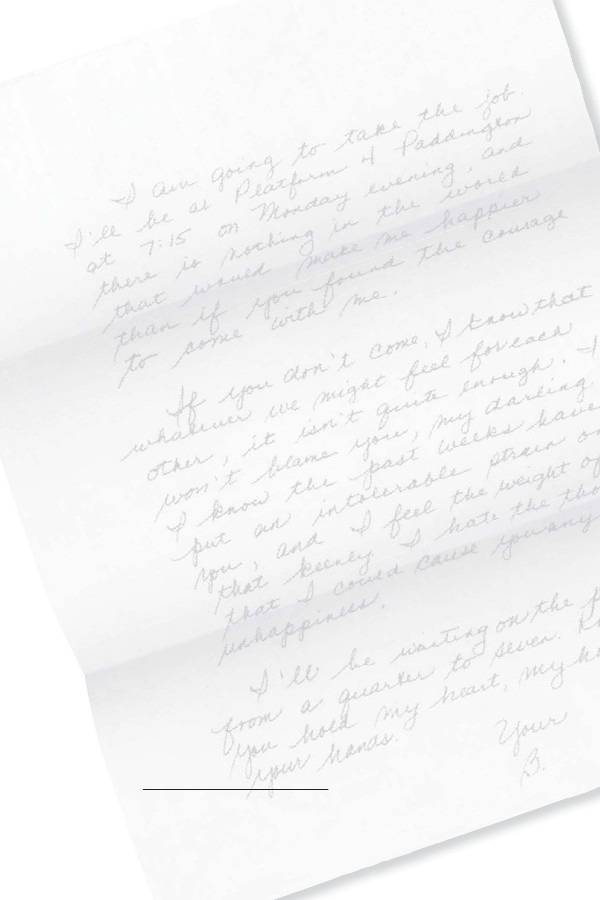 I am going to take the job.
I'll be at Platform 4 Paddington
at 7:15 on Monday evening, and
there is nothing in the world
that would make me happier
than if you found the courage
to come with me.
If you don't come, I know that
whatever we might feel for each
other, it isn't quite enough. I
won't blame you, my darling
I know the past weeks have
put an intolerable strain on
you, and I feel the weight of
that keenly. I hate the tho
that I could cause you any
unhappiness.
I'll be waiting on the p
from a quarter to seven. Kn
you hold my heart, my ho
your hands.
Your
B.